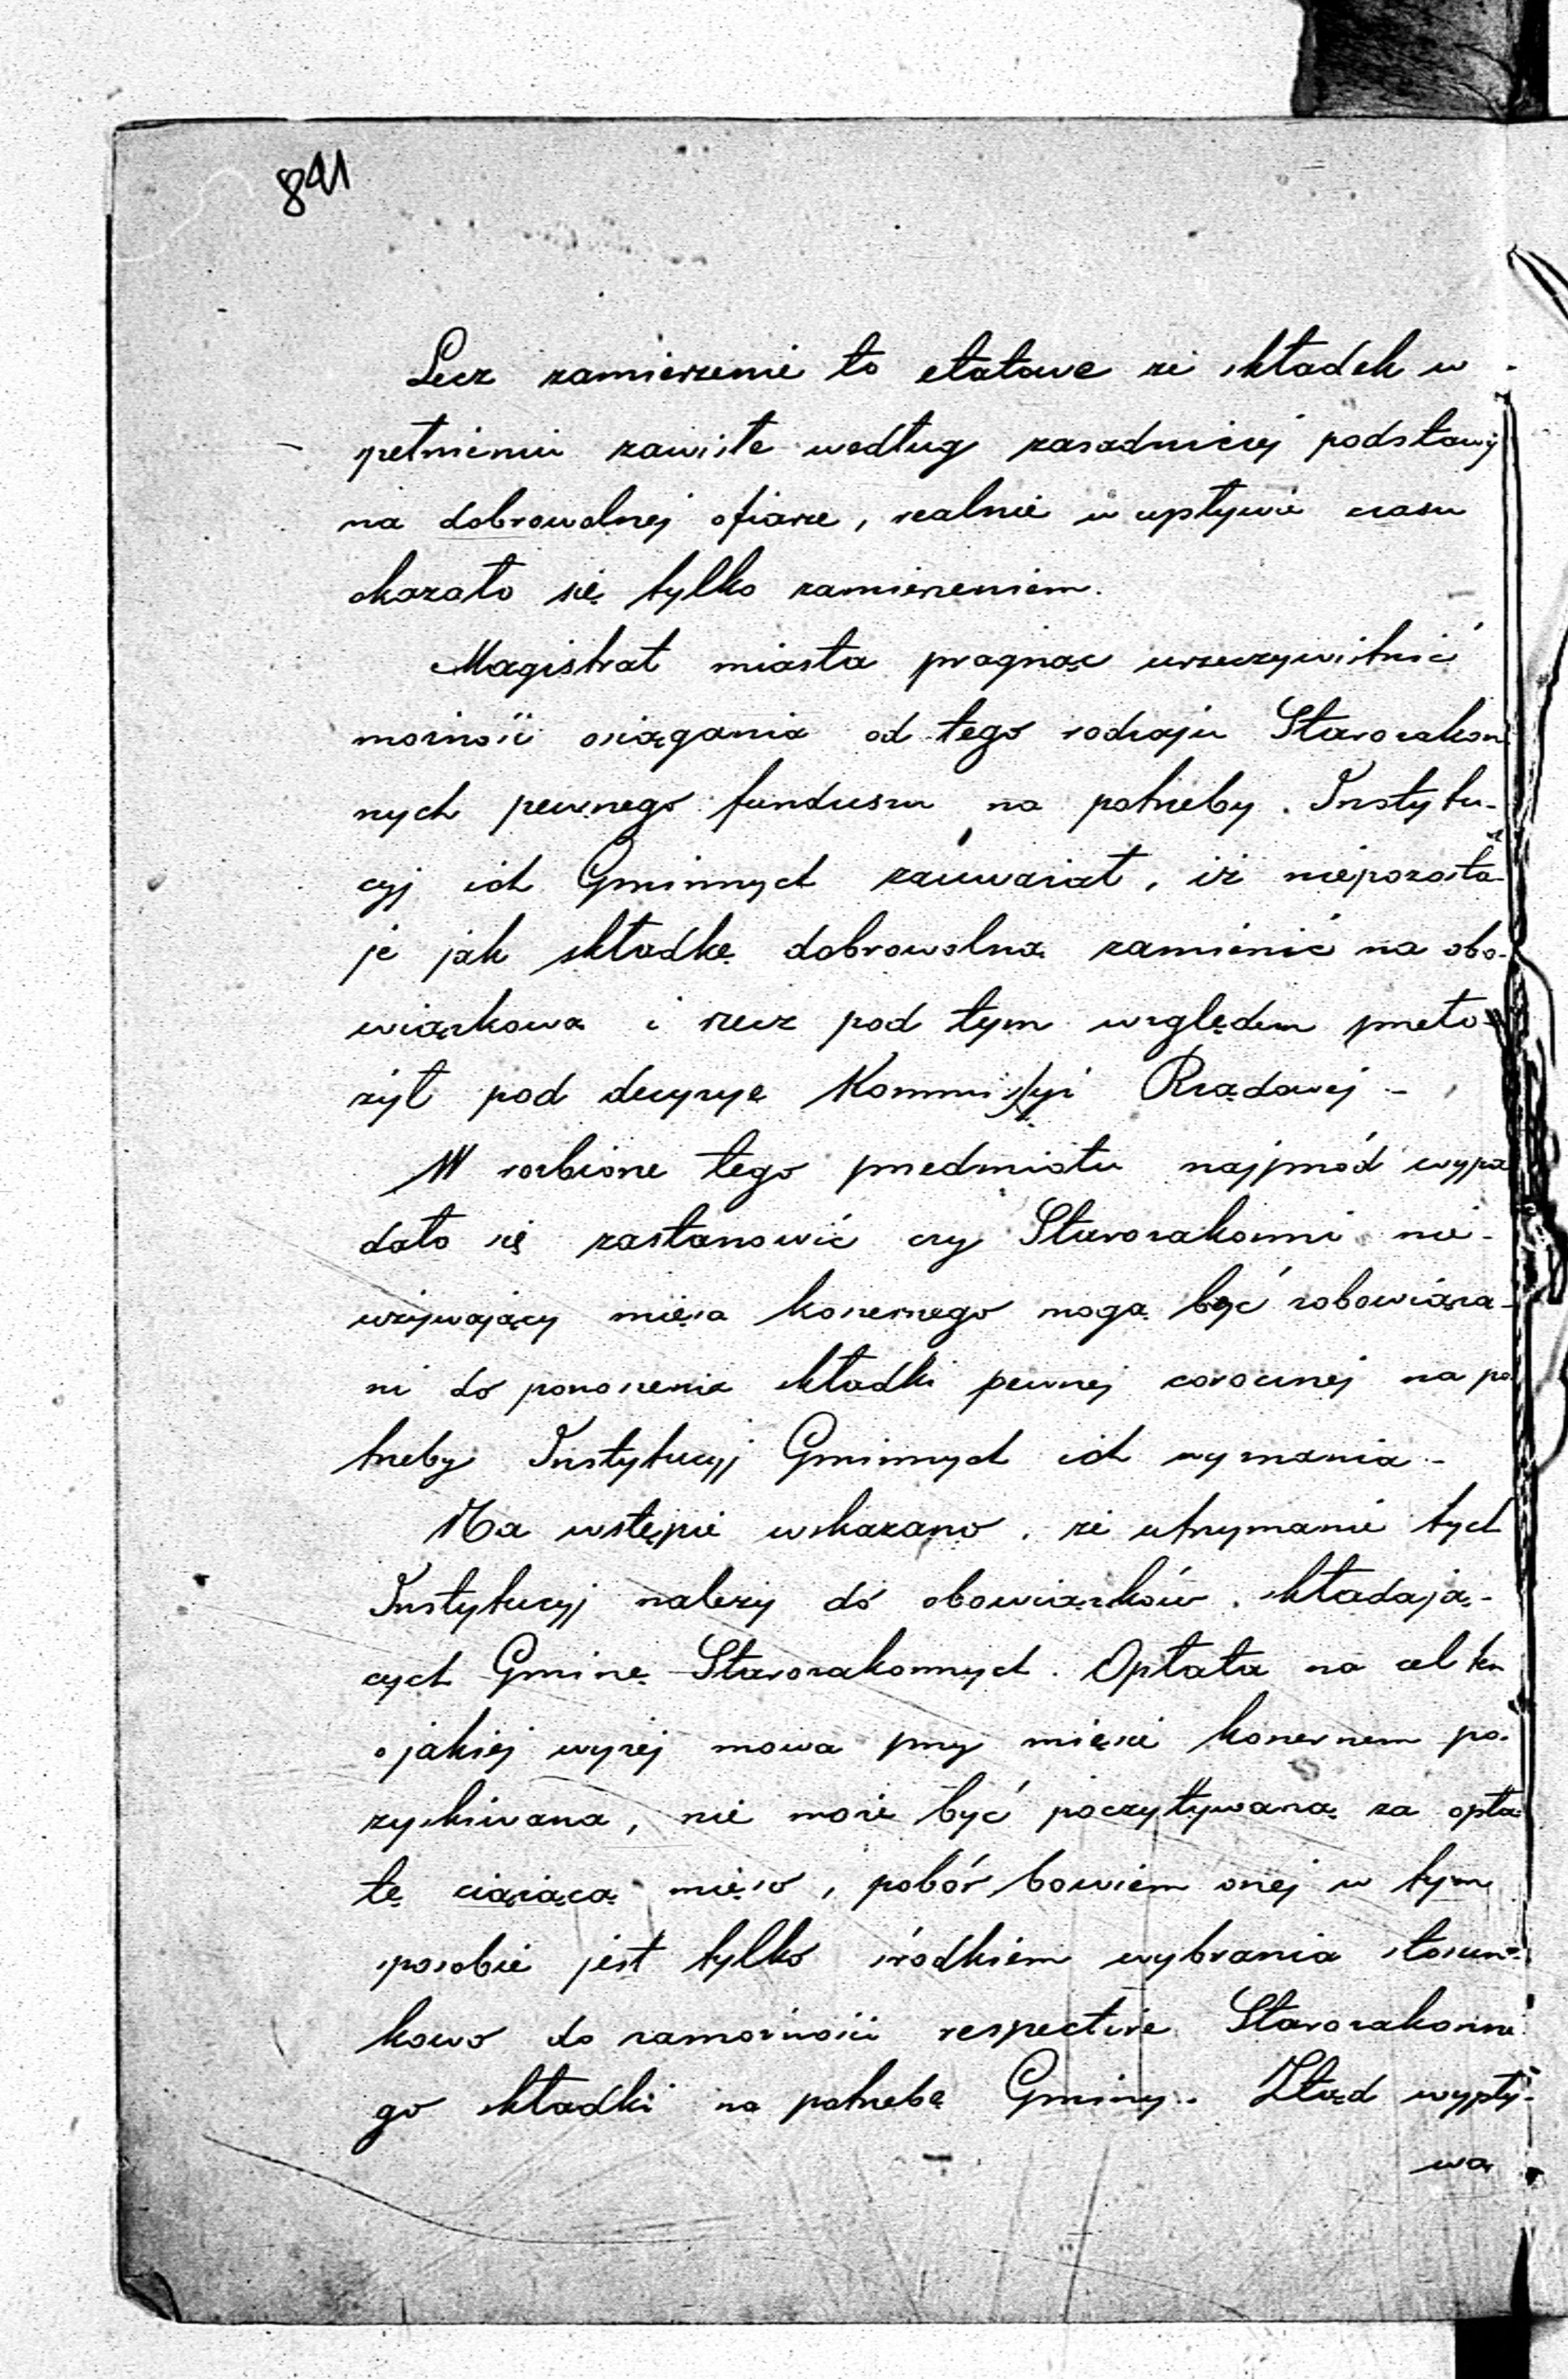 841
Lecz zamierzenie to etatowe ze składek w
pełnieniu zawisłe według zasadniczej podstawy
na dobrowolnej ofiarze, realnie w upływie czasu
okazało się tylko zamierzeniem.
Magistrat miasta pragnąc urzeczywistnić
możności osiągania od tego rodzaju Starozakon-
nych pewnego funduszu na potrzeby Instytu-
cyj ich Gminnych zauważał, iż niepozosta-
je jak składkę dobrowolną zamienić na obo-
wiązkową i rzecz pod tym względem przeło-
żył pod decyzyę Kommissyi Rządowej -
W rozbiorze tego przedmiotu najprzód wypa
dało się zastanowić czy Starozakonni nie-
używający mięsa koszernego mogą być zobowiąza-
ni do ponoszenia składki pewnej corocznej na po
trzeby Instytucyj Gminnych ich wyznania -
Na wstępie wskazano, że utrzymanie tych
Instytucyj należy do obowiązków składają-
cych Gminę Starozakonnych. Opłata na cel ten
o jakiej wyżej mowa przy mięsie koszernem po-
zyskiwana, nie może być poczytywaną za opła
tę ciążącą mięso, pobór bowiem onej w tym
sposobie jest tylko środkiem wybrania stosun-
kowo do zamożności respective Starozakonne
go składki na potrzebę Gminy. Ztąd wypły-
wa